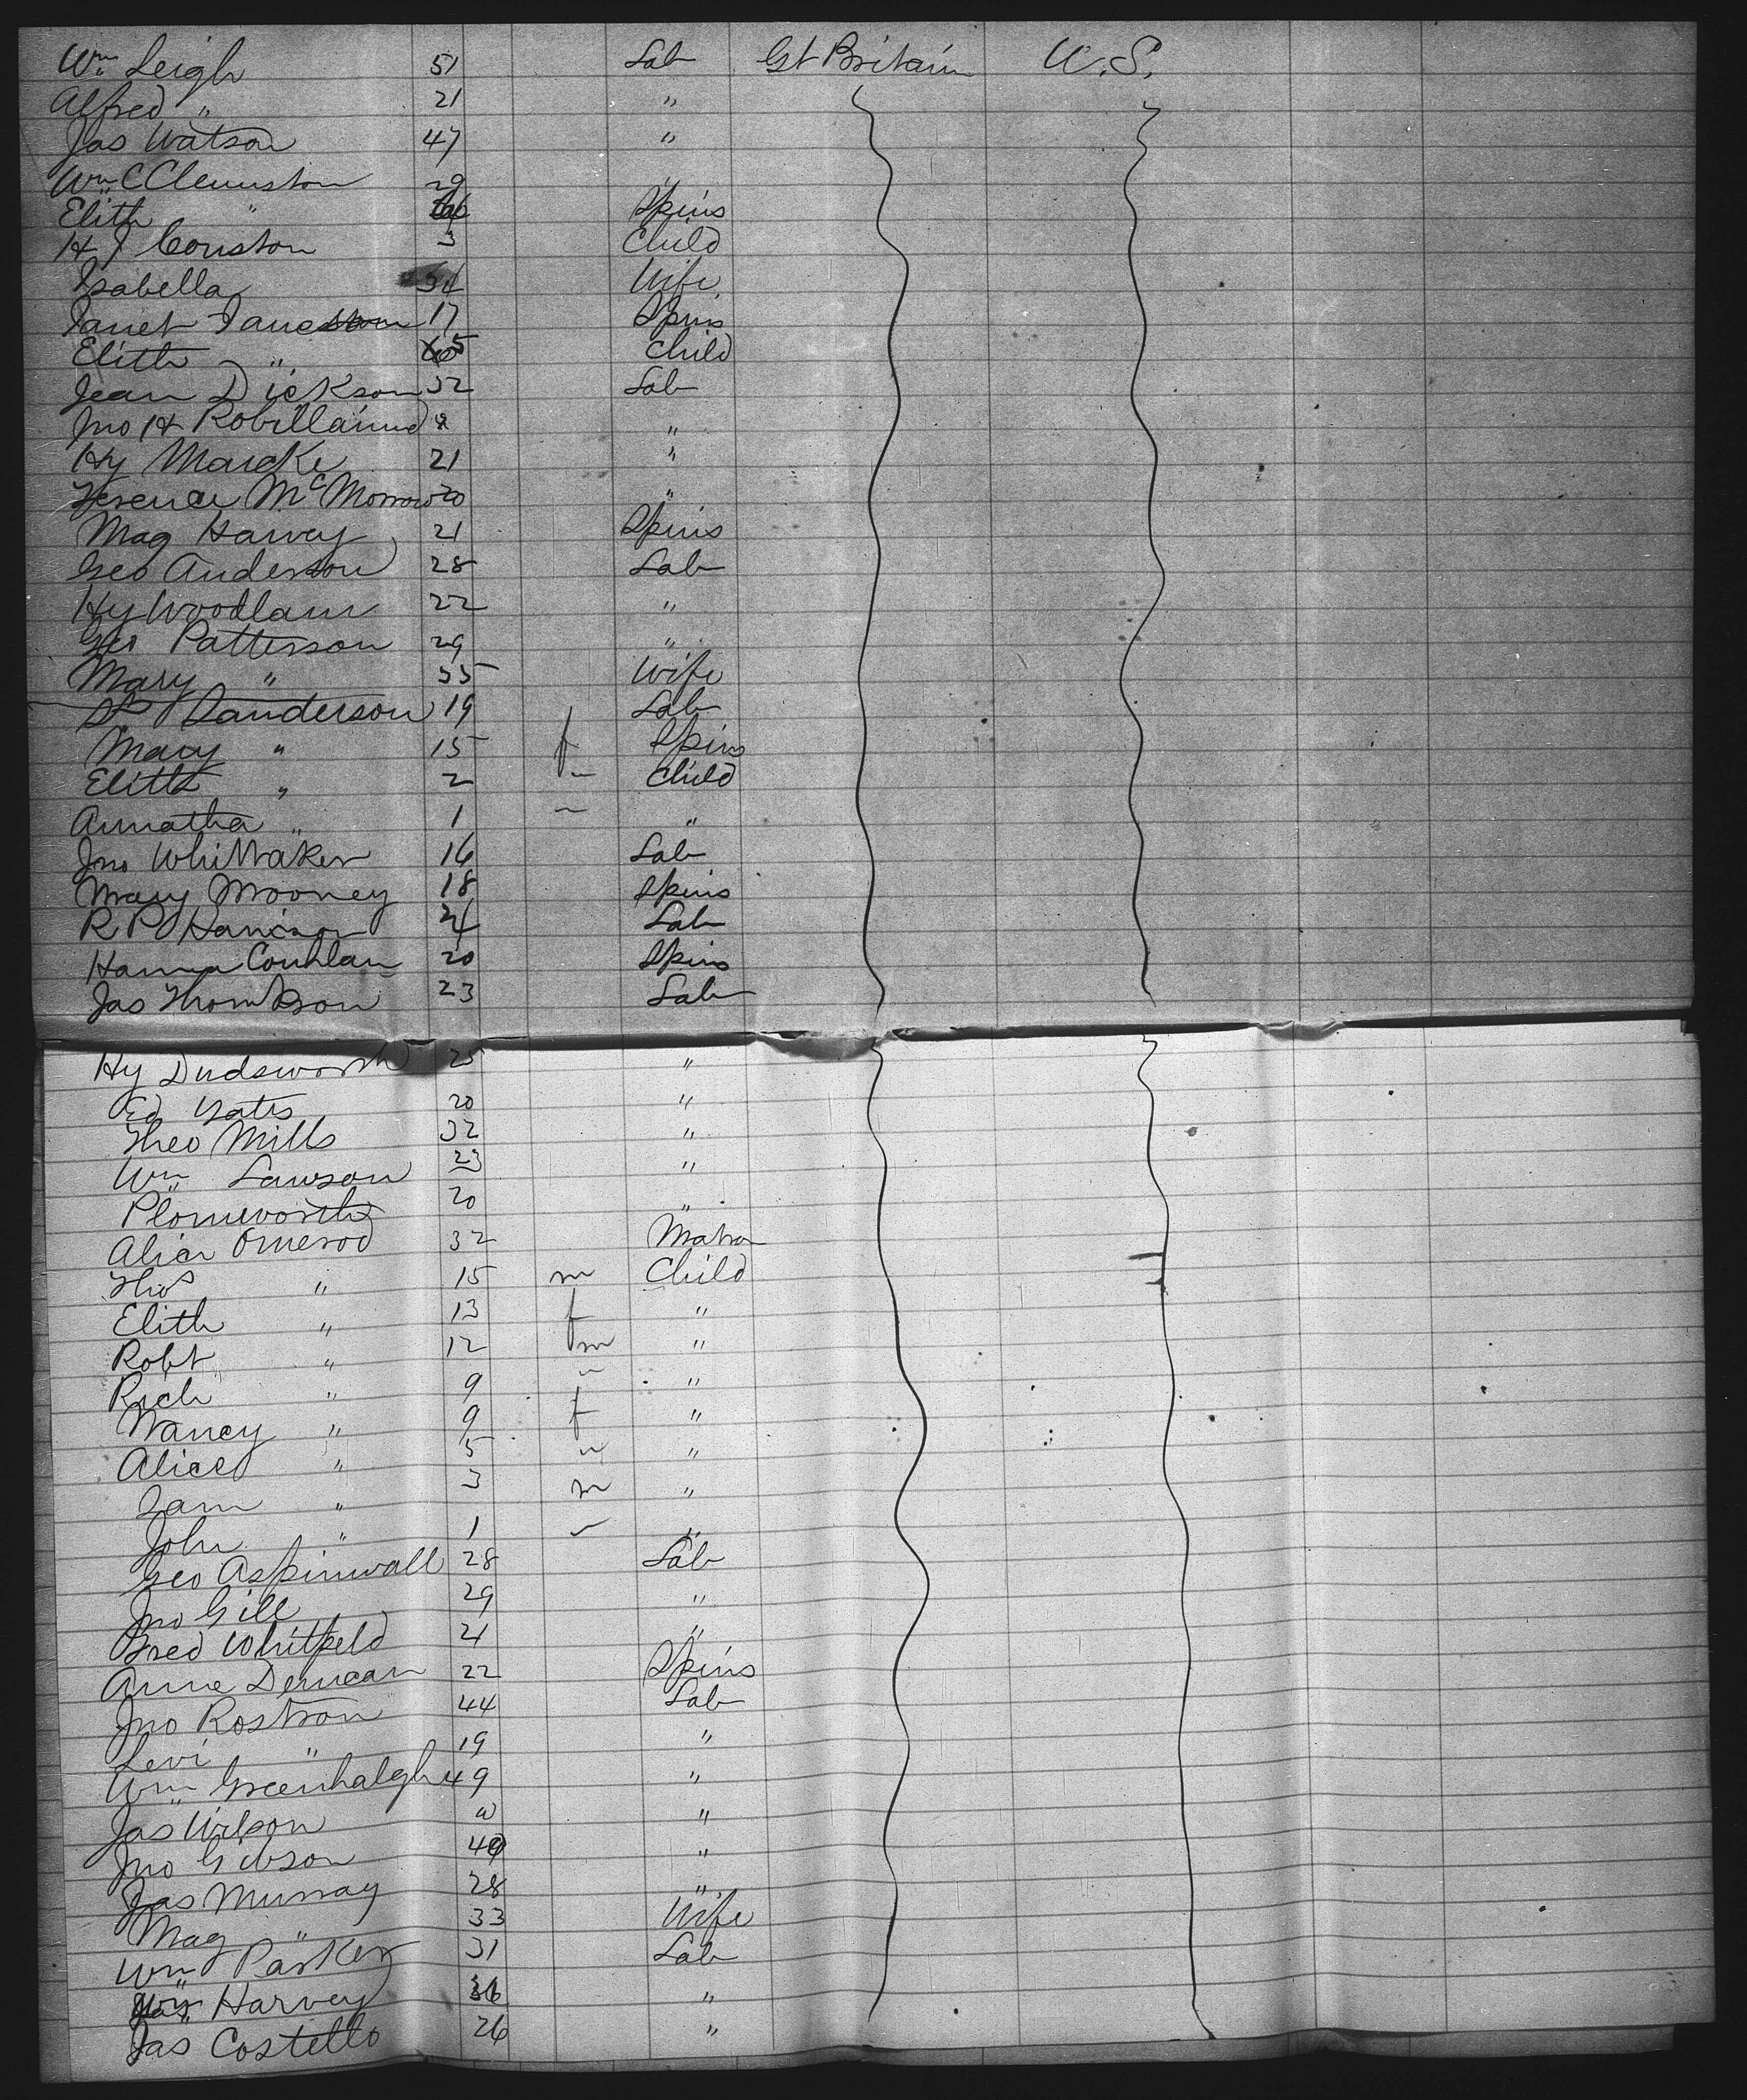 Wm Leigh 51 Lab Gt Britain U.S.
Alfred " 21 "
Jas Watson 47 "
Wm C Clemiston 29 "
Elith " Spins
H J Couston 3 Child
Isabella 34 Wife
Janet Jane 17 Spins
Elith " 5 Child
Jean Dickson 32 Lab
Jno H "
Hy Marcke 21 "
Terence McMorrow 20 "
Mag Harvey 21 Spins
Geo Anderson 28 Lab
Hy Woodlam 22 "
Geo Patterson 29 "
Mary " 35 Wife
Sanderson 19 Lab
Mary " 15 f Spins
Elith " 2 " Child
Annatha " 1 " "
Jno Whittaker 16 Lab
Mary Mooney 18 Spins
R P Harrison 24 Lab
Hanna Couhlan 20 Spins
Jas Thomson 23 Lab
Hy Dudsworth 25 "
Ed Yates 20 "
Theo Mills 32 "
Wm Lawson 23 "
Plomworth 20 "
Alice Ormerod 32 Matron
Thos " 15 m Child
Elith " 13 f "
Robt " 12 m "
Rich " 9 " "
Nancy " 9 f "
Alice " 5 " "
Sam " 3 m "
John " 1 " "
Geo Aspinwall 28 Lab
Jno Gill 29 "
Fred Whitfield 21 "
Anne Demcan 22 Spins
Jno Rostron 44 Lab
Levi " 19 "
Wm Greenhalgh 49 "
Jas Wilson "
Jno Gibson 40 "
Jas Murray 28 "
Mag " 33 Wife
Wm Parker 31 Lab
Harvey 36 "
Jas Costello 26 "